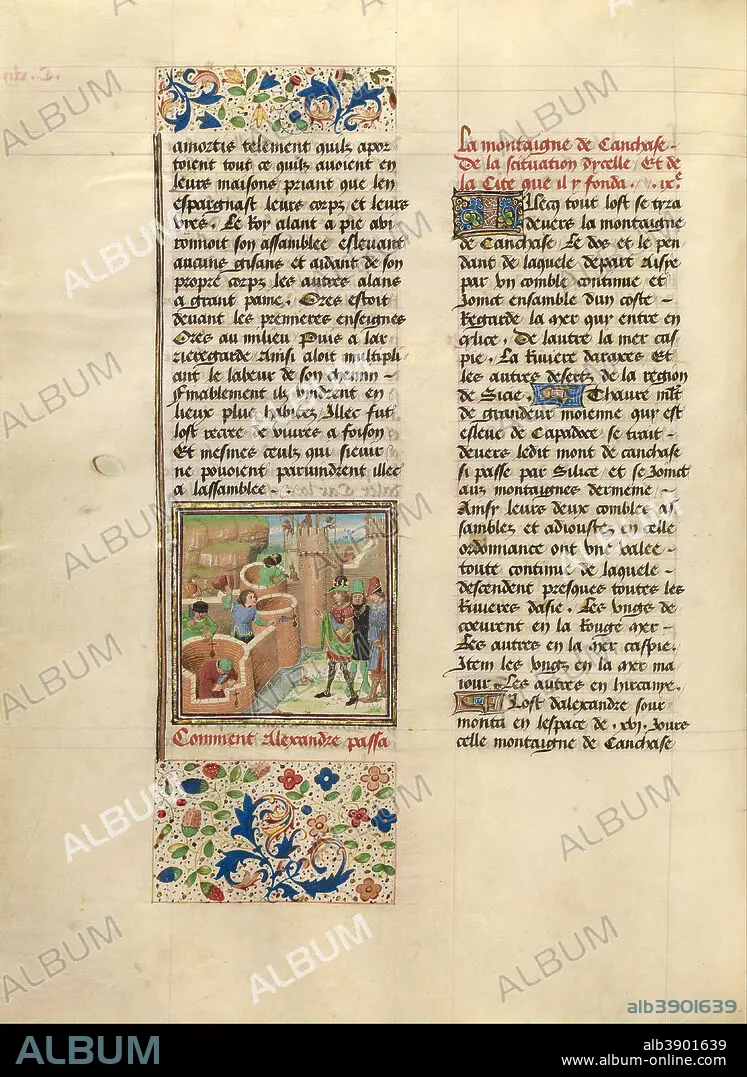 amortis telement quilz apor
toient tout ce quilz auoient en
leurs maisons priant que len
espargnast leurs corps et leurs
viures. Le Roy alant a pie abi
ronnoit son assamblee esleuant
aucuns gisans et aidant de son
propre corps les autres alans
a grant paine. Ores estoit
deuant les premieres enseignes
Ores au milieu Puis a lar
rieregarde Ainsi aloit multipli
ant le labeur de son chemin -
Finablement ilz vindrent en
lieux plus habitez Illec fut
lost recree de viures a foison
Et mesmes ceulz qui sieuir
ne pouoient paruindrent illec
a lassamblee - .
Comment Alexandre passa
La montaigne de Canchase -
De la scituation dycelle Et de
la Cite que il y fonda. .ix.e
Illecq tout lost se tyra
deuers la montaigne
de Canchase Le dos et le pen
dant de laquele depart Aisye
par vn comble continue et
Joinct ensamble dun coste -
Regarde la mer quy entre en
cylice. De lautre la mer cas
pie. La Riuiere daraxes Et
les autres desertz de la region
de Sicie. Thaure mlt
de grandeur moienne quy est
esleue de Capadoce se trait -
deuers ledit mont de canchase
si passe par Silice et se Joinct
aux montaignes dermenie -
Ainsy leurs deux combles as
samblez et adioustez en celle
ordonnance ont vne valee -
toute continue de laquele -
descendent presques toutes les
Riuieres dasie. Les vngs de
coeurent en la Rouge mer -
Les autres en la mer caspie.
Item les vngz en la mer ma
iour. Les autres en hircanye.
Lost dalexandre sour
monta en lespace de .xvj. Jours
celle montaigne de Canchase
alb3901639
ALBUM
alb3901639
www.album-online.com